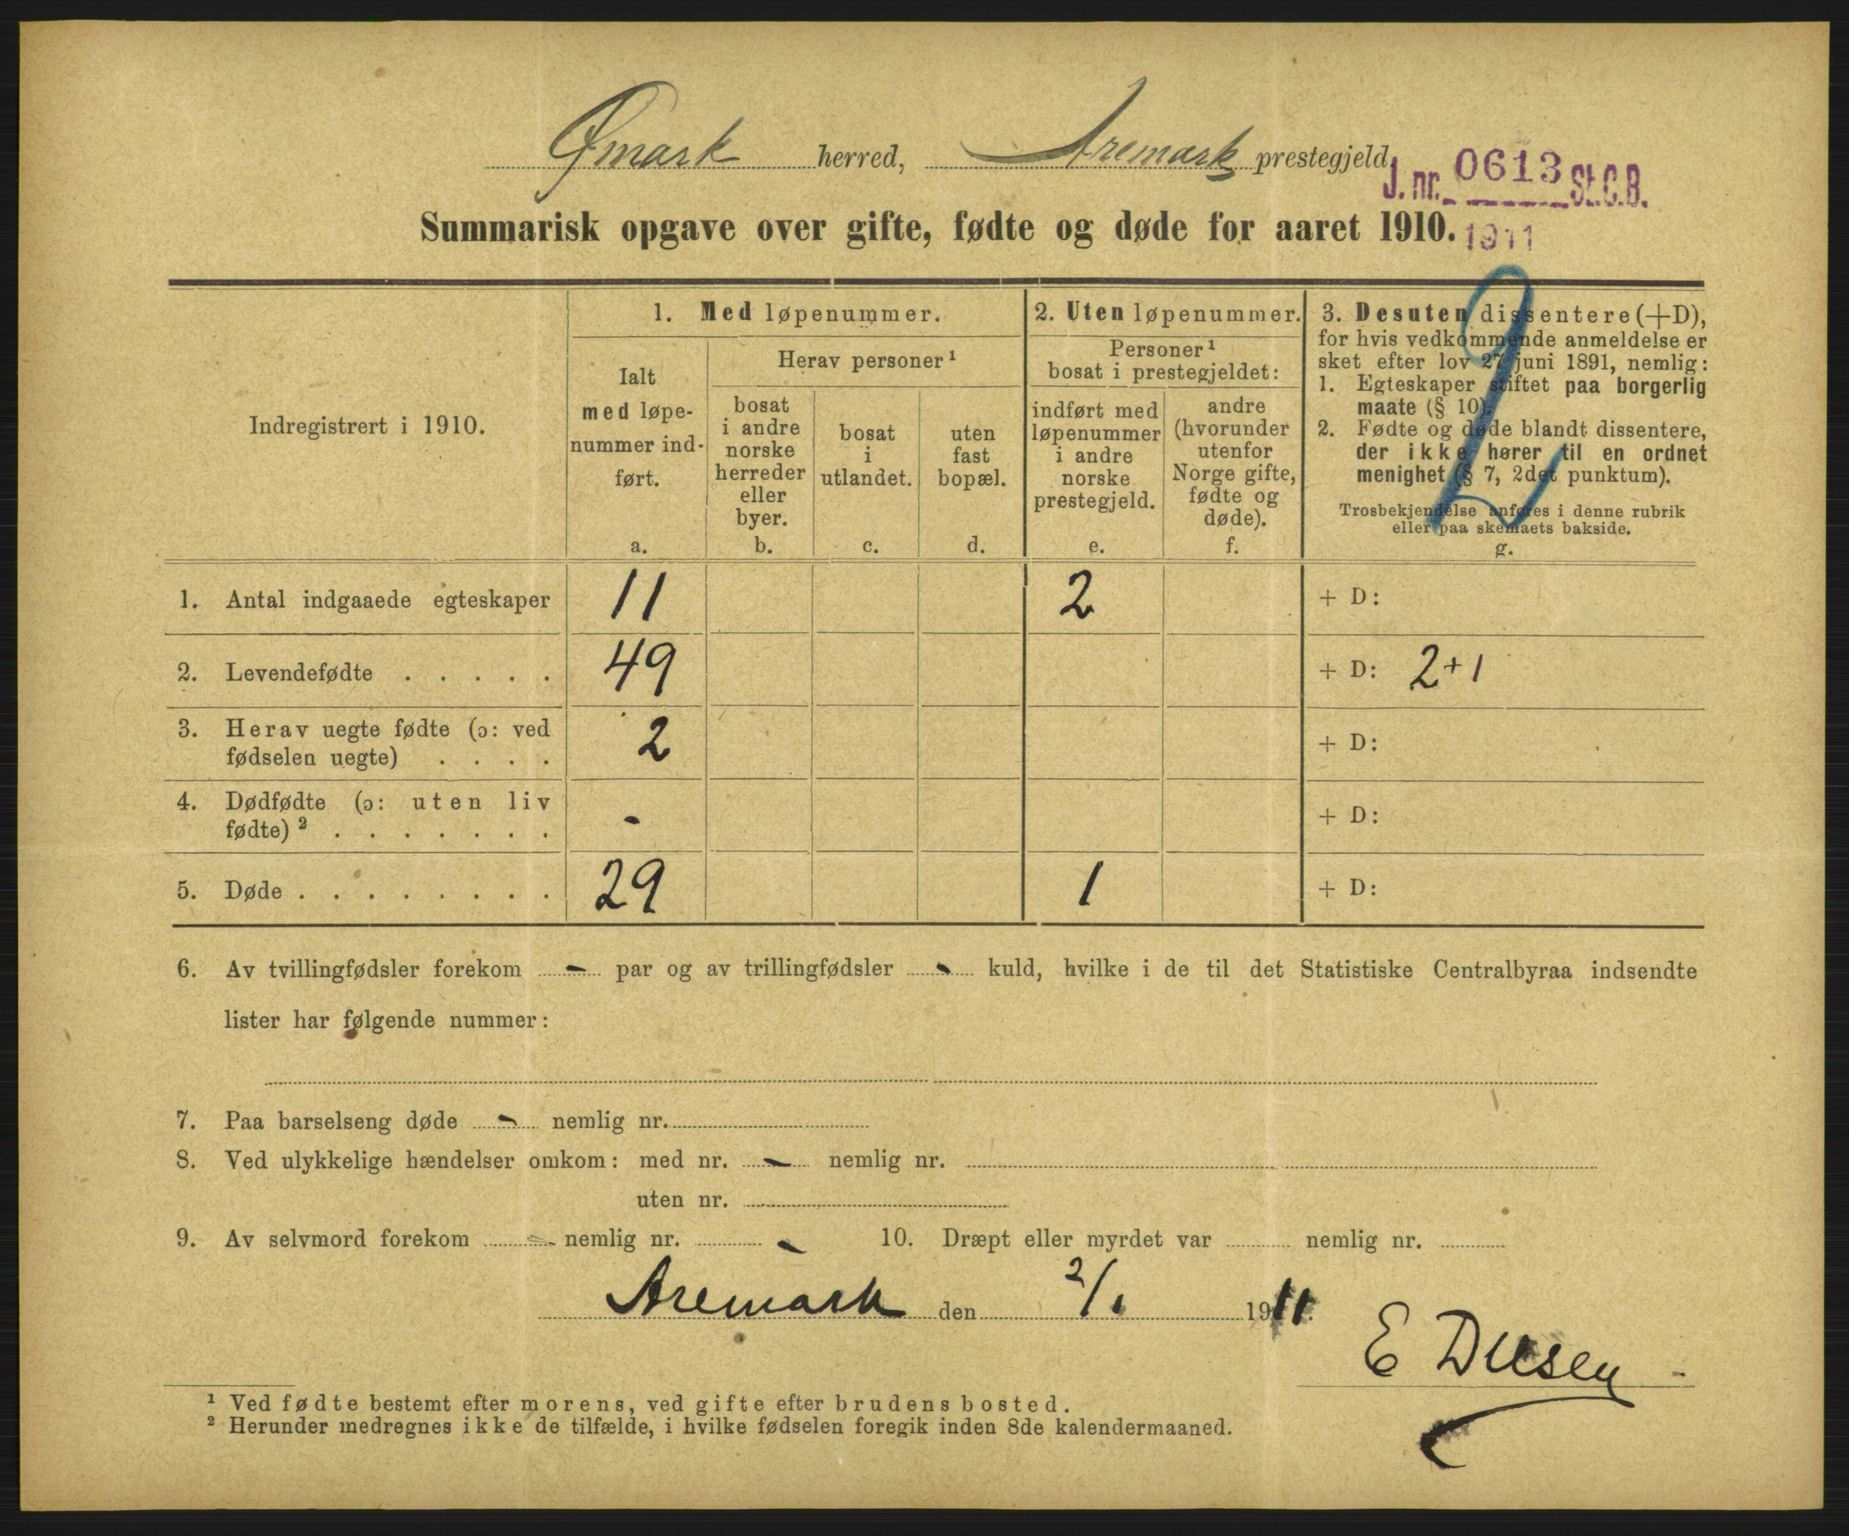 Ømark herred, Aremark prestegjeld
J. nr. 0613 St.C.B.
1911
Summarisk opgave over gifte, fødte og døde for aaret 1910.
2
Indregistrert i 1910.
1. Med løpenummer.
Ialt
med løpe-
nummer ind-
ført.
a.
Herav personer ¹
bosat
i andre
norske
herreder
eller
byer.
b.
bosat
i
utlandet.
c.
uten
fast
bopæl.
d.
2. Uten løpenummer.
Personer ¹
bosat i prestegjeldet:
indført med
løpenummer
i andre
norske
prestegjeld.
e.
andre
(hvorunder
utenfor
Norge gifte,
fødte og
døde).
f.
3. Desuten dissentere (+D),
for hvis vedkommende anmeldelse er
sket efter lov 27 juni 1891, nemlig:
1. Egteskaper stiftet paa borgerlig
maate (§ 10).
2. Fødte og døde blandt dissentere,
der ikke hører til en ordnet
menighet (§ 7, 2det punktum).
Trosbekjendelse anføres i denne rubrik
eller paa skemaets bakside.
g.
1. Antal indgaaede egteskaper 11 2 + D:
2. Levendefødte . . . . . 49 + D: 2+1
3. Herav uegte fødte (ɔ: ved
fødselen uegte) . . . . 2 + D:
4. Dødfødte (ɔ: uten liv
fødte) ² . . . . . . . - + D:
5. Døde . . . . . . . . 29 1 + D:
6. Av tvillingfødsler forekom - par og av trillingfødsler - kuld, hvilke i de til det Statistiske Centralbyraa indsendte
lister har følgende nummer:
7. Paa barselseng døde - nemlig nr.
8. Ved ulykkelige hændelser omkom: med nr. - nemlig nr.
uten nr.
9. Av selvmord forekom - nemlig nr. - 10. Dræpt eller myrdet var nemlig nr.
Aremark den 2/1 1911.
¹ Ved fødte bestemt efter morens, ved gifte efter brudens bosted.
² Herunder medregnes ikke de tilfælde, i hvilke fødselen foregik inden 8de kalendermaaned.